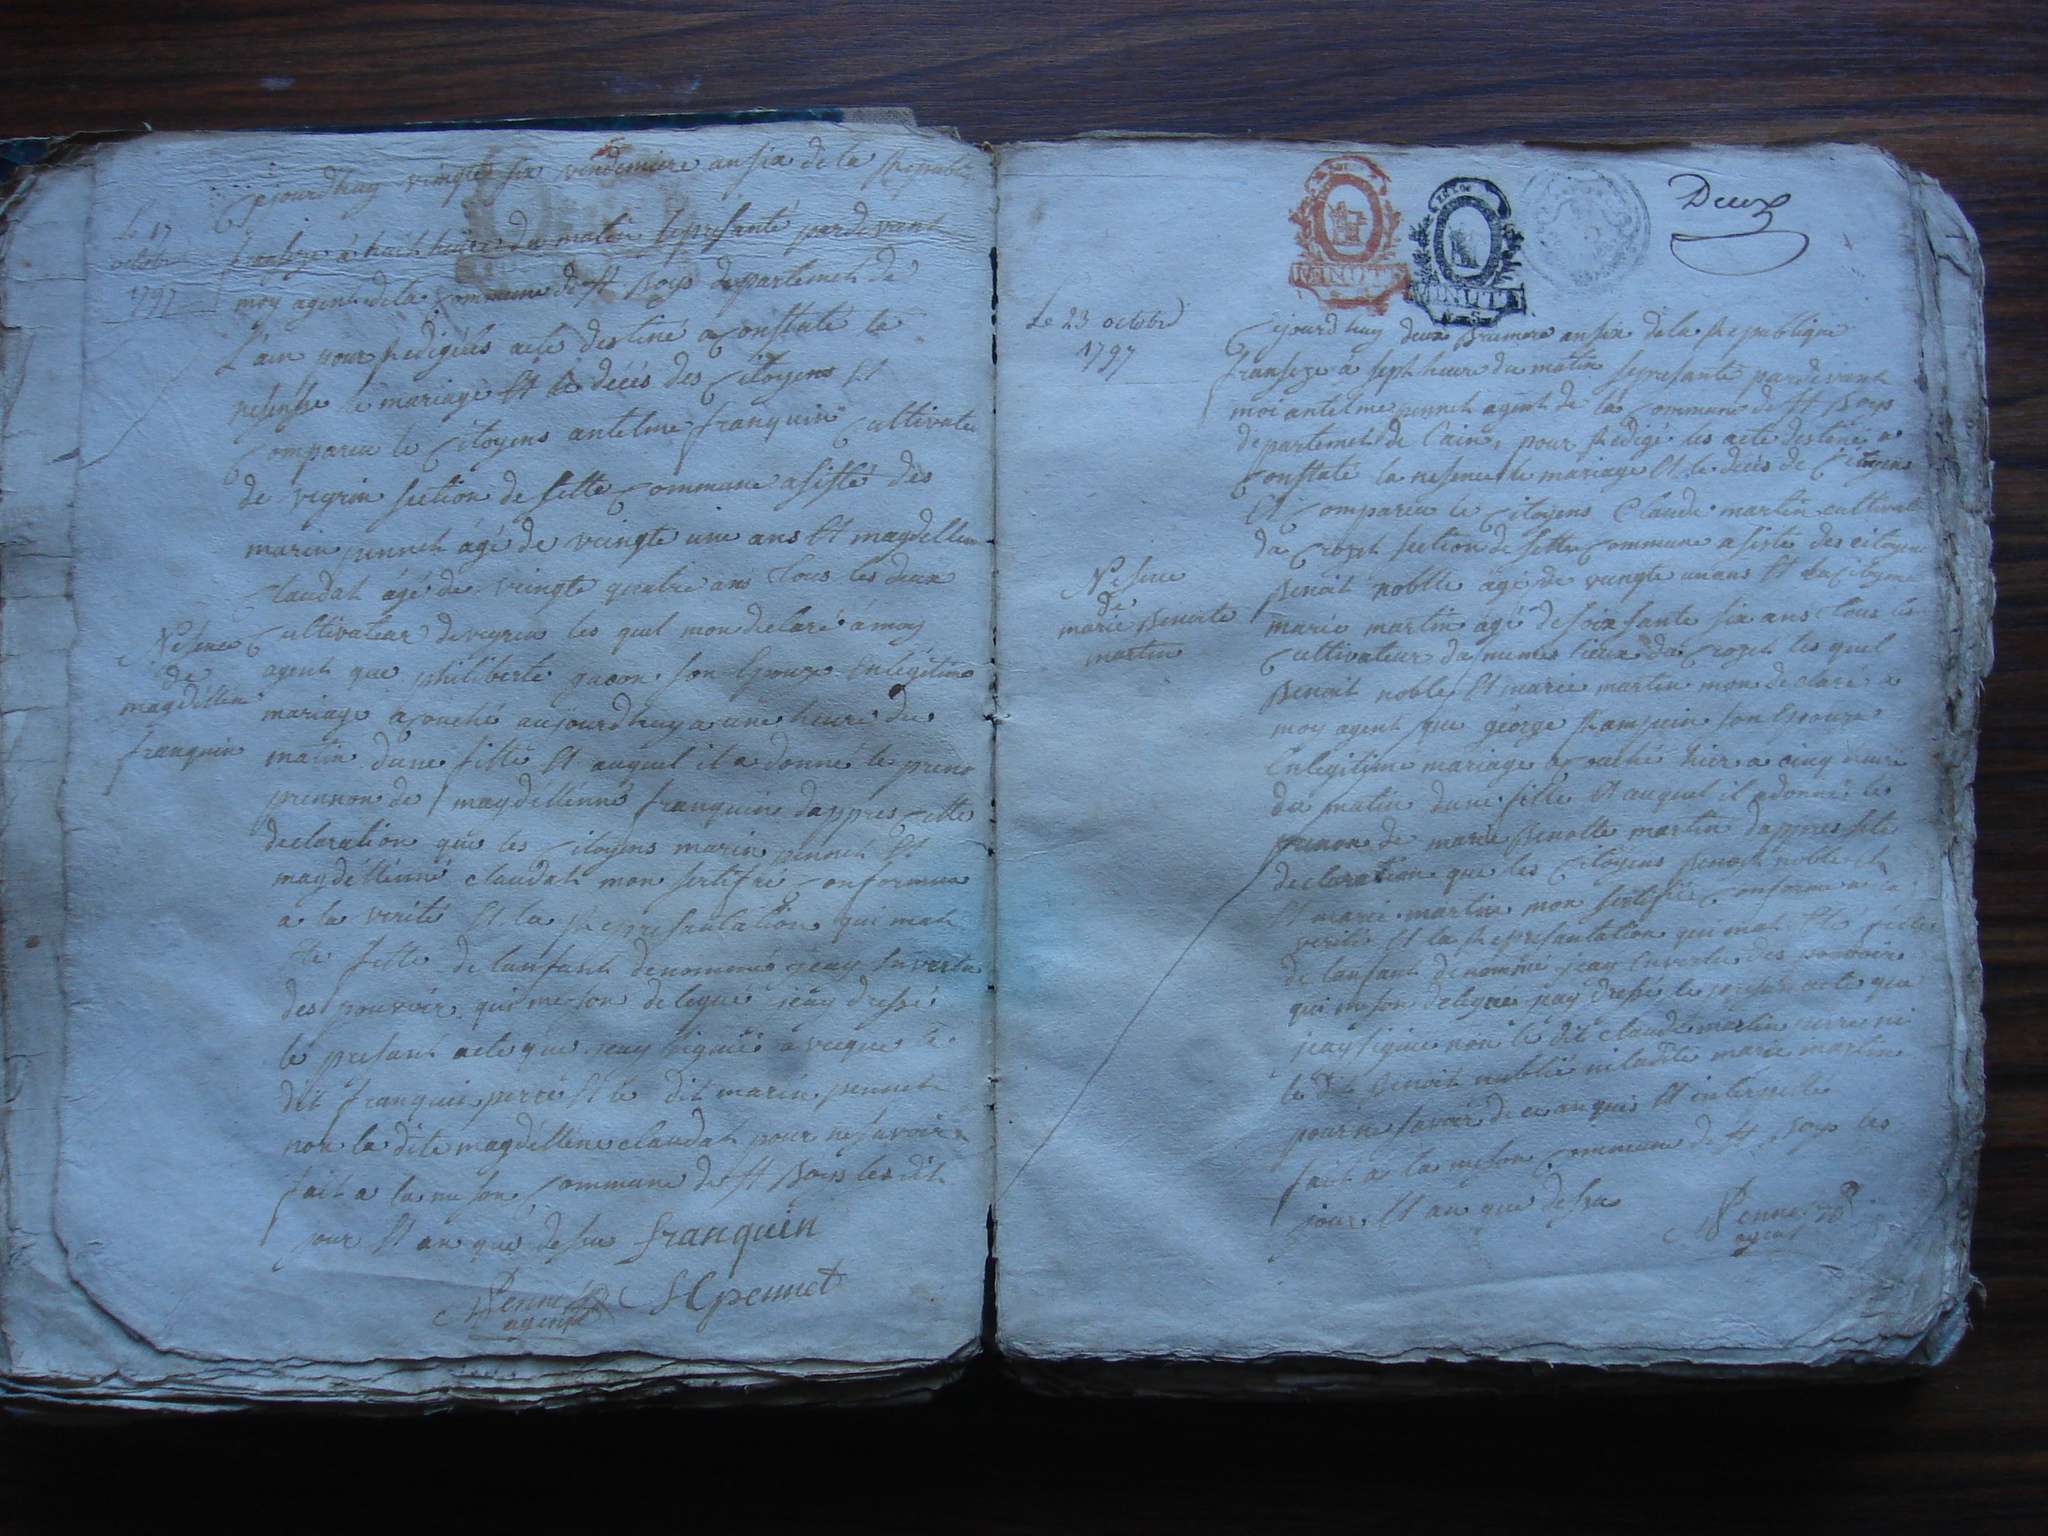 Cejourdhuy vingte six vendemiere an six de la Republi
Le 17
octobre
1797
franseze à huit heure du matin sepresanté pardevant
moy agent de la Commune de St Boys departement de
L'ain pour Redigées acte destiné a Constaté la
nesense le mariage Et le décés des Citoyens Et
Compareu le Citoyens antelme franquin Cultivateu
de veyrin section de sette Commune asisté des
marin pennet âgé de veingte une ans Et magdellene
Claudat âgé de veingte quatre ans tous les deux
Cultivateur de veyrin les quel mon declaré à moy
Nesence
de
magdéllene
franquin
agent que philiberte gacon son Epouze En légitime
mariage acouché aujourdhuy a une heure du
matin dune fille Et auquel il a donné le preno
prennon de magdéllenne franquin dappres Cette
declaration que les Citoyens marin pennet Et
magdéllenne Claudat mon sertifié Conforme
a la verité Et la Representation qui mat
Eté fette de lanfant denommé jeay Envertu
des pouvoir qui meson delegué jeay dressé
le presant acte que jeay signié avecque le
dit franquin perre Et le dit marin pennet
non la dite magdéllene Claudat pour ne savoir
fait a la meson Commune de St Boys les dit
jour Et an que desu franquin
Pennet
agent
pennet
Deux
Le 23 octobre
1797
Cejourdhuy deux Brumere an six de la Republique
franseze à sept heure du matin sepresante pardevant
moi antelme pennet agent de la Commune de St Boys
departement de l'ain, pour Redigé les acte destiné a
Constaté la nesence le mariage Et le decés de Citoyens
Et Compareu le Citoyens Claude martin cultivate
du Crozet section de sette Commune asisté des citoyens
Nesence
de
marie Benoite
martin
Benoit noble âgé de veingte un ans Et la Citoyene
marie martin âgé de soixsante six ans tous les
Cultivateur du memes lieux du Crozet les quel
Benoit noble Et marie martin mon declaré a
moy agent que géorge son Epouze
En legitime mariage acouché hier a cinq heure
du matin dune fille Et auquel il a donné le
prenon de marie Benoite martin dappres sete
declaration que les Citoyens Benoit noble
Et marie martin mon sertifié Conforme a la
verité Et la Represantation qui mat Eté fette
de lanfant denommé jeay Envertu des pouvoir
qui meson delegué jeay dressé le presant acte que
jeay signié non le dit claude martin perre ni
le dit Benoit noble ni ladite marie martin
pour ne savoir de ce anquis Et interpellé
fait a la meson Commune de St Boys les
jour Et an que desu
Pennet
agent
MINUTE
MINUTE